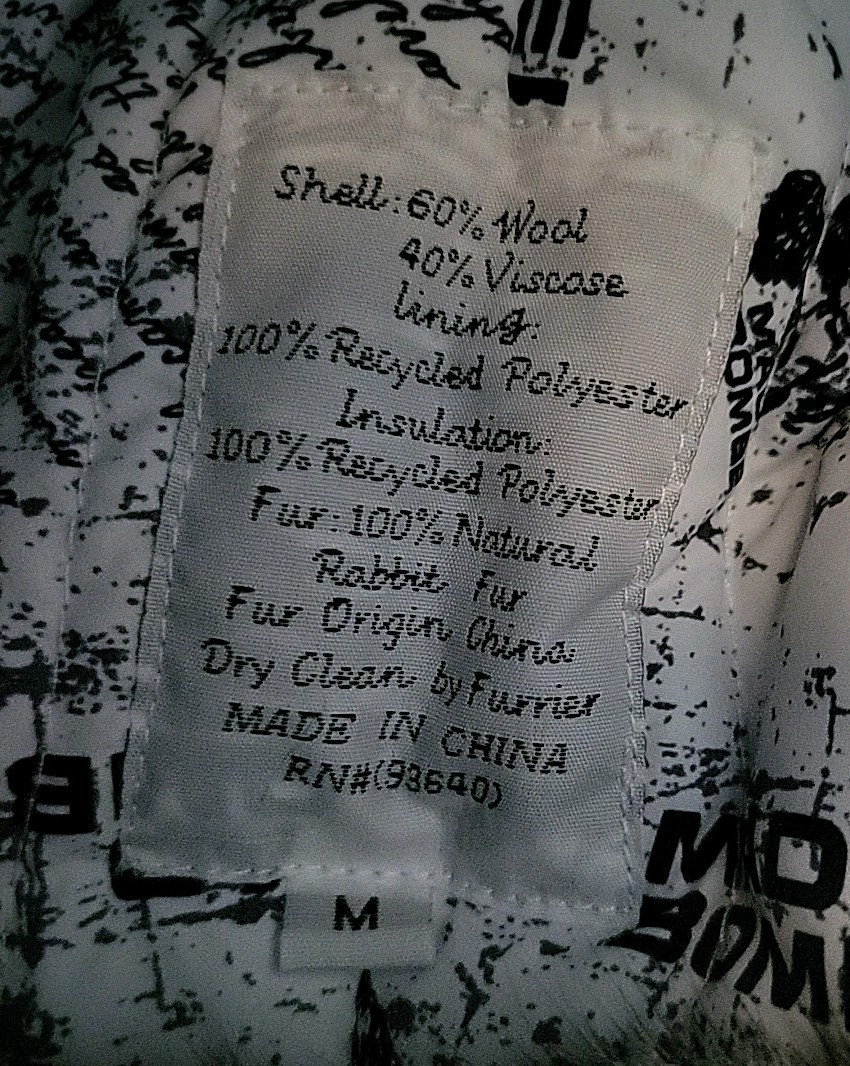 Shell: 60% Wool
40% Viscose
lining:
100% Recycled Polyester
Insulation:
100% Recycled Polyester
Fur: 100% Natural
Rabbit Fur
Fur Origin China
Dry Clean by Furrier
MADE IN CHINA
RN#(93640)
M